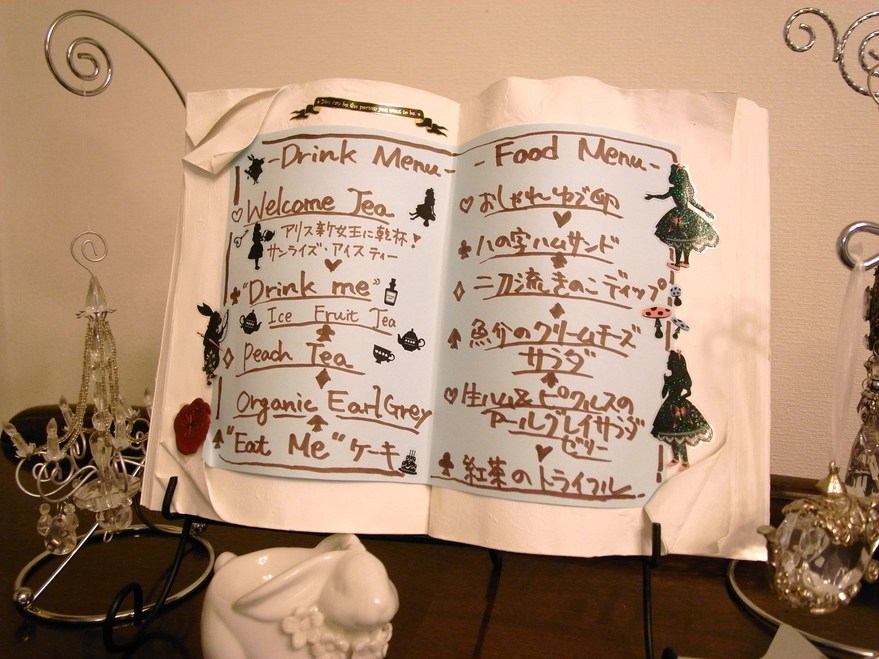 You can be the person you want to be
-Drink Menu-
Welcome Tea
アリス新女王に乾杯!
サンライズ・アイスティー
"Drink me"
Ice Fruit Tea
Peach Tea
Organic Earl Grey
"Eat Me" ケーキ
-Food Menu-
おしゃれゆで卵
ハの字ハムサンド
二刀流きのこディップ
魚介のクリームチーズ
サラダ
生ハム&ピクルスの
アールグレイサラダ
ゼリー
紅葉のトライフル